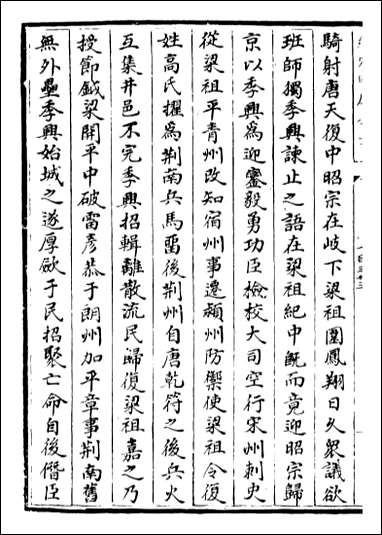 騎射唐天復中昭宗在岐下梁祖圍鳳翔日久衆議欲
班師獨季興諫止之語在梁祖紀中既而竟迎昭宗歸
京以季興爲迎鑾毅勇功臣檢校大司空行宋州刺史
從梁祖平青州改知宿州事遷潁州防禦使梁祖令復
姓高氏擢爲荆南兵馬留後荆州自唐乾符之後兵火
互集井邑不完季興招輯離散流民歸復梁祖嘉之乃
授節鉞梁開平中破雷彦恭于朗州加平章事荆南舊
無外壘季興始城之遂厚斂于民招聚亡命自後僭臣